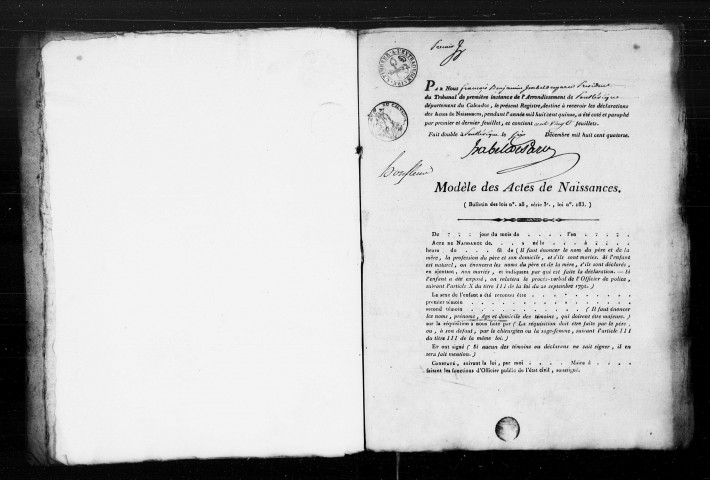 Premier
PAR NOUS françois Benjamin Président
du Tribunal de première instance de l'Arrondissement de Pontlévêque
département du Calvados, le présent Registre, destiné à recevoir les déclarations
des Actes de Naissances, pendant l'année mil huit cent quinze, a été coté et paraphé
par premier et dernier feuillet, et contient cent vingt feuillets.
Fait double à Pontlévêque le Décembre mil huit cent quatorze.
honfleur
Modèle des Actes de Naissances.
( Bulletin des lois n°. 28, série 3e., loi n°. 183. )
Du . . . jour du mois de . . . . l'an . . . .
ACTE DE NAISSANCE de. . . . né le . . . à . . . .
heure du . . . . fil de ( Il faut énoncer le nom du père et de la
mère, la profession du père et son domicile, et s'ils sont mariés. Si l'enfant
est naturel, on énoncera les noms du père et de la mère, s'ils sont déclarés,
en ajoutant, non mariés, et indiquant par qui est faite la déclaration. — Si
l'enfant a été exposé, on relatera le procès-verbal de l'Officier de police,
suivant l'article X du titre III de la loi du 20 septembre 1792.)
Le sexe de l'enfant a été reconnu être . . . . . . .
premier témoin . . . . . . . . . . . .
second témoin . . . . . . . . . . ( Il faut énoncer
les noms, prénoms, âge et domicile des témoins, qui doivent être majeurs. )
sur la réquisition à nous faite par ( La réquisition doit être faite par le père,
ou, à son défaut, par le chirurgien ou la sage-femme, suivant l'article III
du titre III de la même loi. )
Et ont signé ( Si aucun des témoins ou déclarans ne sait signer, il en
sera fait mention. )
Constaté, suivant la loi, par moi . . . . Maire à . . . .
faisant les fonctions d'Officier public de l'état civil, soussigné.